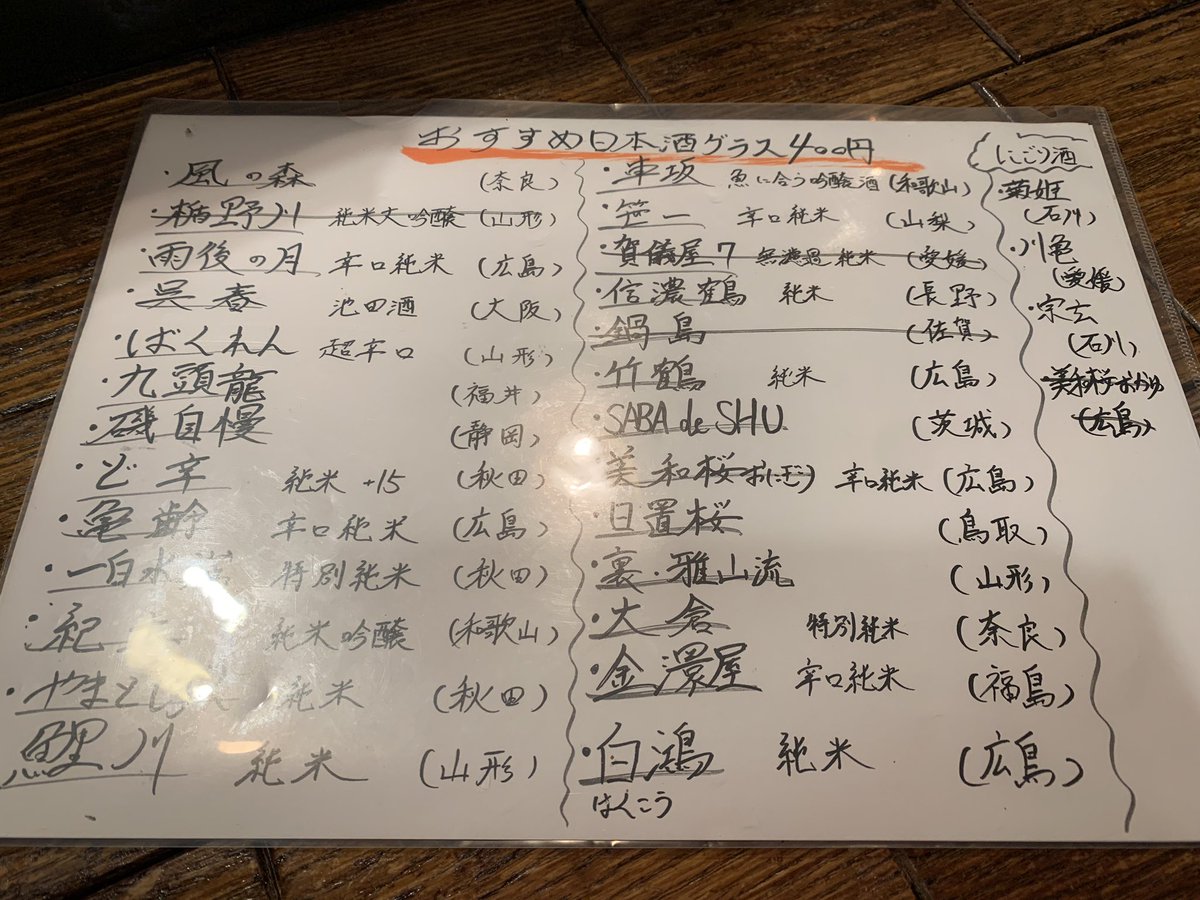 おすすめ日本酒グラス400円
・風の森 (奈良)
・楯野川 純米大吟醸 (山形)
・雨後の月 辛口純米 (広島)
・呉春 池田酒 (大阪)
・ばくれん 超辛口 (山形)
・九頭龍 (福井)
・磯自慢 (静岡)
・ど辛 純米 +15 (秋田)
・亀齢 辛口純米 (広島)
・一白水 特別純米 (秋田)
・紀 純米吟醸 (和歌山)
・やまと 純米 (秋田)
鯉川 純米 (山形)
・車坂 魚に合う吟醸酒 (和歌山)
・笹一 辛口純米 (山梨)
・賀儀屋7 無濾過純米 (愛媛)
・信濃鶴 純米 (長野)
・鍋島 (佐賀)
・竹鶴 純米 (広島)
・SABA de SHU (茨城)
・美和桜 おにごり 辛口純米 (広島)
・日置桜 (鳥取)
・裏・雅山流 (山形)
・大倉 特別純米 (奈良)
・金澤屋 辛口純米 (福島)
・白鴻 純米 (広島)
はくこう
にごり酒
菊姫
(石川)
・川亀
(愛媛)
・宗玄
(石川)
美和桜
(広島)